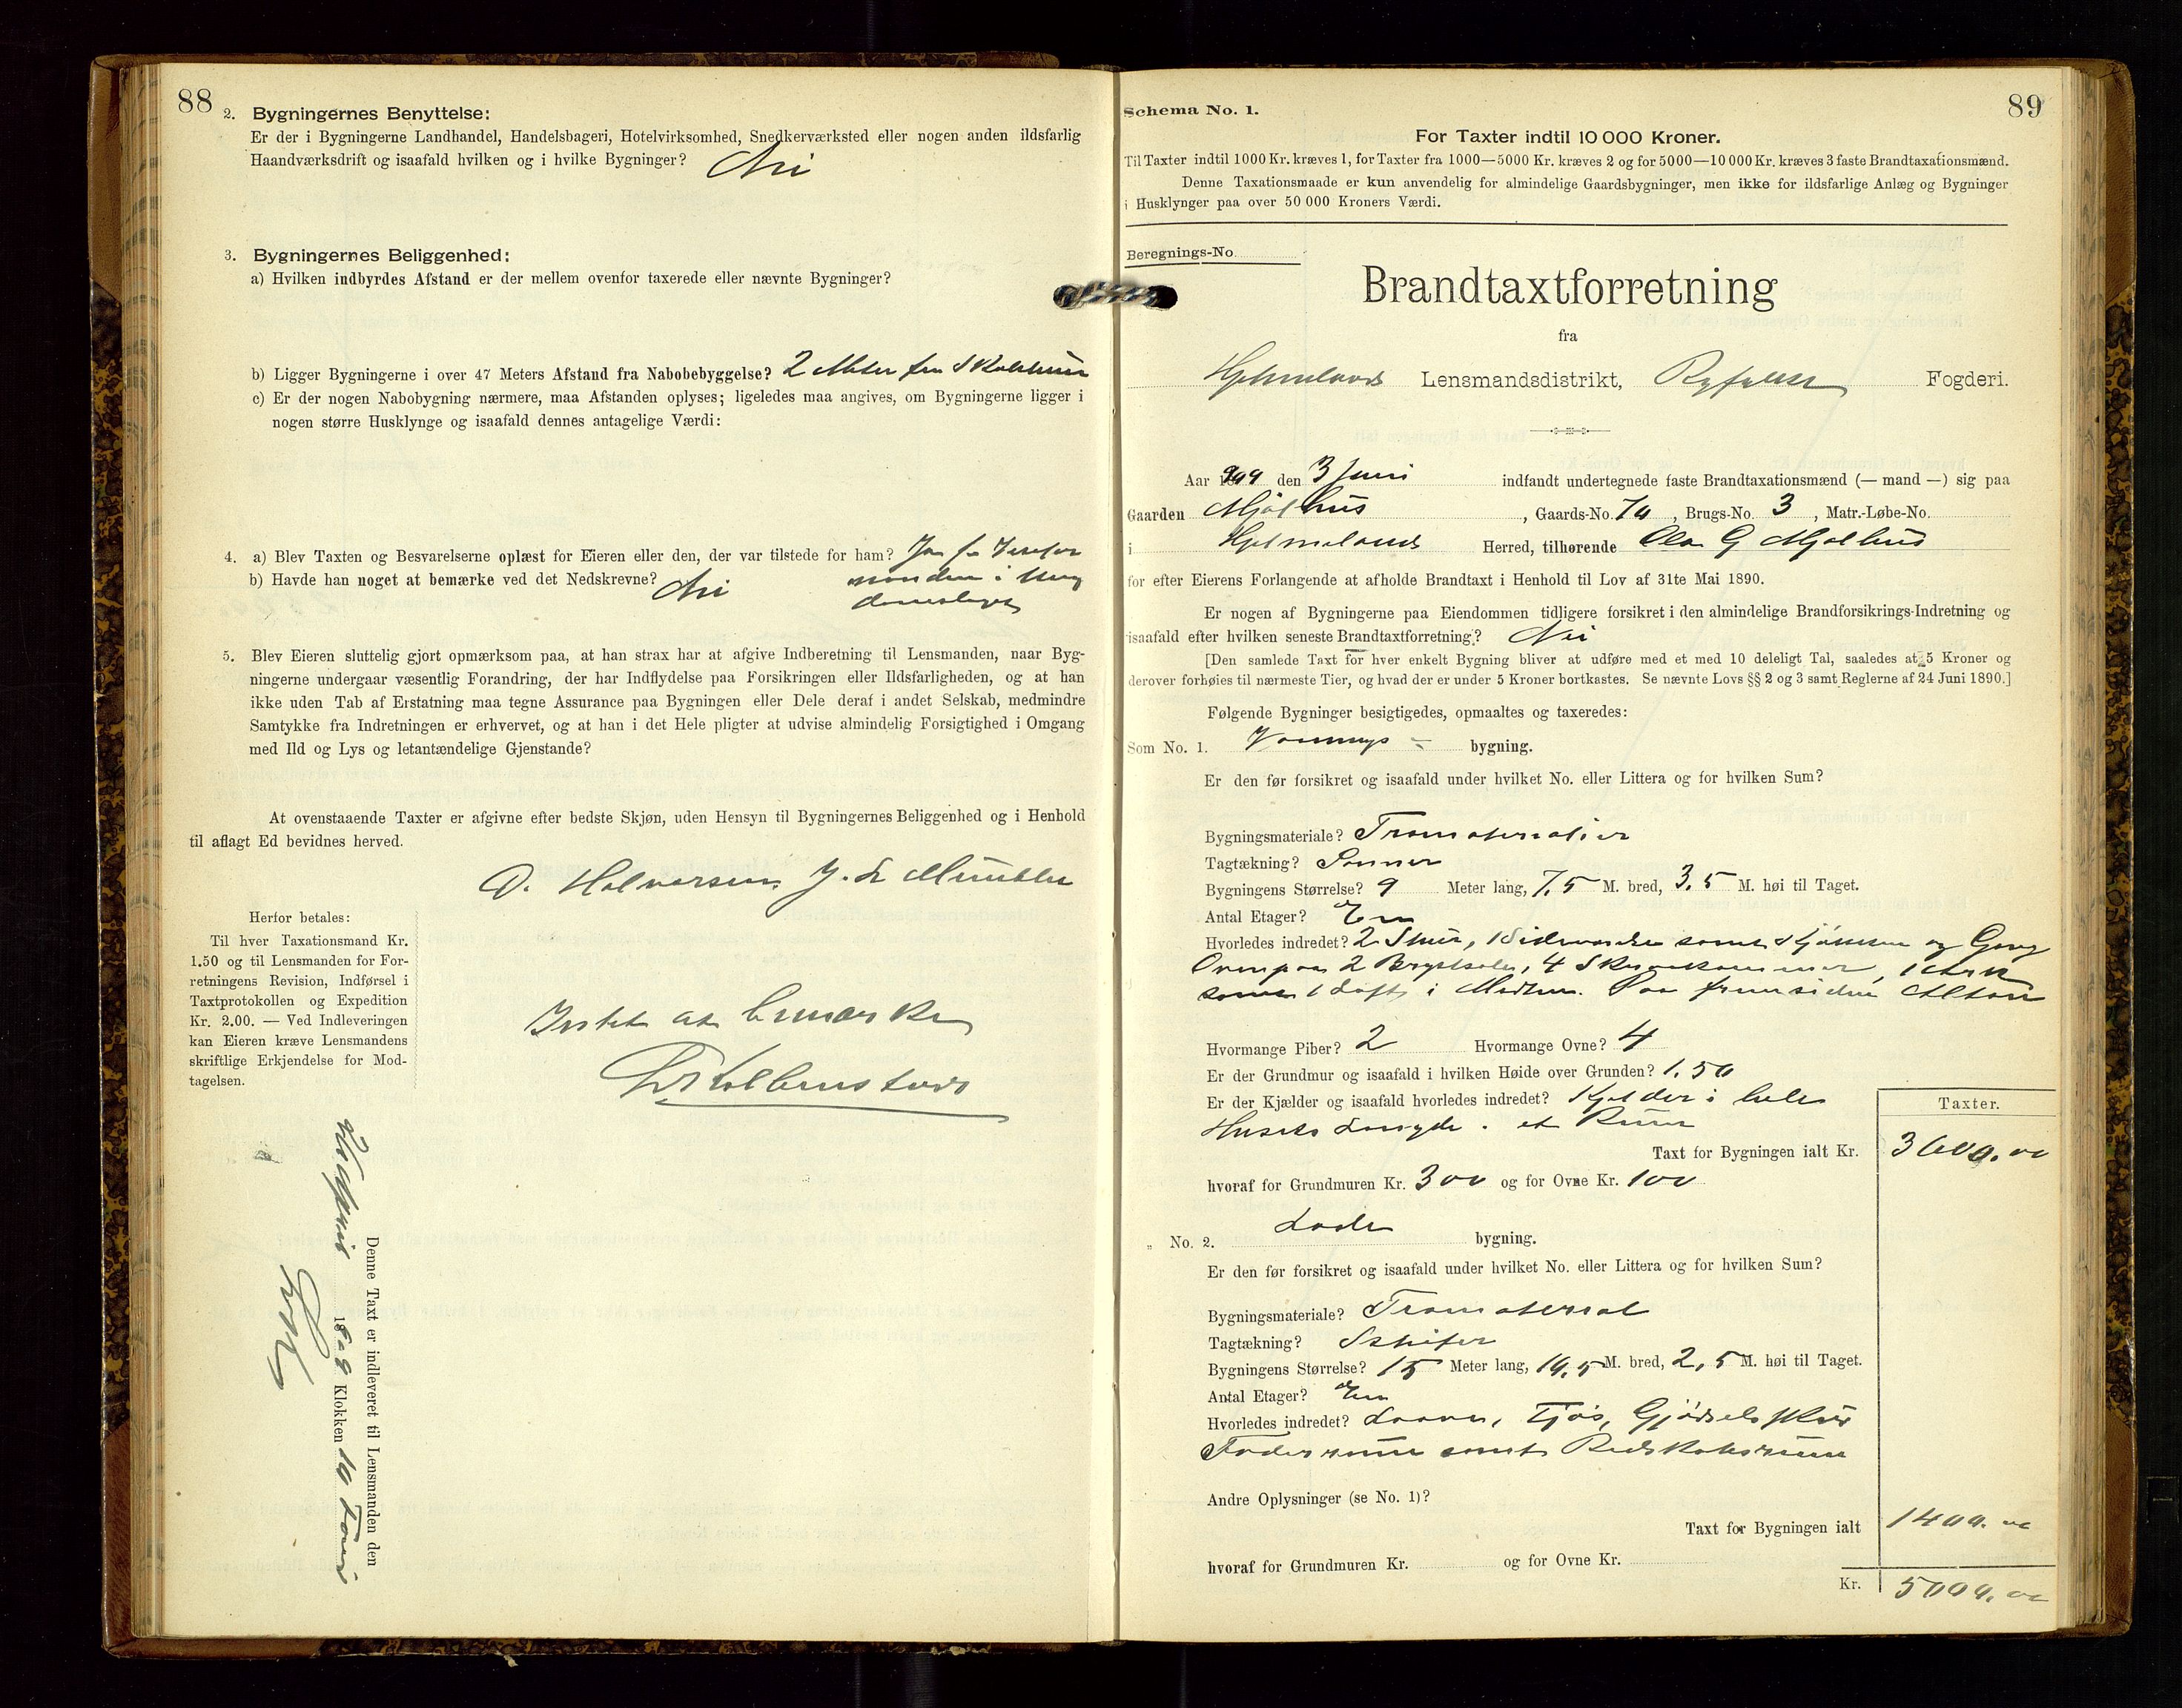 88
2. Bygningernes Benyttelse:
Er der i Bygningerne Landhandel, Handelsbageri, Hotelvirksomhed, Snedkerværksted eller nogen anden ildsfarlig
Haandværksdrift og isaafald hvilken og i hvilke Bygninger? Nei
3. Bygningernes Beliggenhed:
a) Hvilken indbyrdes Afstand er der mellem ovenfor taxerede eller nævnte Bygninger?
b) Ligger Bygningerne i over 47 Meters Afstand fra Nabobebyggelse? 2 Meter fra
c) Er der nogen Nabobygning nærmere, maa Afstanden oplyses; ligeledes maa angives, om Bygningerne ligger i
nogen større Husklynge og isaafald dennes antagelige Værdi:
4. a) Blev Taxten og Besvarelserne oplæst for Eieren eller den, der var tilstede for ham? Ja
b) Havde han noget at bemærke ved det Nedskrevne? Nei
5. Blev Eieren sluttelig gjort opmærksom paa, at han strax har at afgive Indberetning til Lensmanden, naar Byg-
ningerne undergaar væsentlig Forandring, der har Indflydelse paa Forsikringen eller Ildsfarligheden, og at han
ikke uden Tab af Erstatning maa tegne Assurance paa Bygningen eller Dele deraf i andet Selskab, medmindre
Samtykke fra Indretningen er erhvervet, og at han i det Hele pligter at udvise almindelig Forsigtighed i Omgang
med Ild og Lys og letantændelige Gjenstande?
At ovenstaaende Taxter er afgivne efter bedste Skjøn, uden Hensyn til Bygningernes Beliggenhed og i Henhold
til aflagt Ed bevidnes herved.
O. Halvorsen
Herfor betales:
Til hver Taxationsmand Kr.
1.50 og til Lensmanden for For-
retningens Revision, Indførsel i
Taxtprotokollen og Expedition
Kr. 2.00. — Ved Indleveringen
kan Eieren kræve Lensmandens
skriftlige Erkjendelse for Mod-
tagelsen.
Intet at bemærke
Denne Taxt er indleveret til Lensmanden den
18 Klokken 10
89
Schema No. 1.
For Taxter indtil 10 000 Kroner.
Til Taxter indtil 1000 Kr. kræves 1, for Taxter fra 1000—5000 Kr. kræves 2 og for 5000—10 000 Kr. kræves 3 faste Brandtaxationsmænd.
Denne Taxationsmaade er kun anvendelig for almindelige Gaardsbygninger, men ikke for ildsfarlige Anlæg og Bygninger
i Husklynger paa over 50 000 Kroners Værdi.
Beregnings-No.
Brandtaxtforretning
fra
Hjelmelands Lensmandsdistrikt, Ryfylke Fogderi.
Aar 1909 den 3 Juni indfandt undertegnede faste Brandtaxationsmænd (— mand —) sig paa
Gaarden Mjølhus, Gaards-No. 70, Brugs-No. 3, Matr.-Løbe-No.
i Hjelmelands Herred, tilhørende Ola G Mjølhus
for efter Eierens Forlangende at afholde Brandtaxt i Henhold til Lov af 31te Mai 1890.
Er nogen af Bygningerne paa Eiendommen tidligere forsikret i den almindelige Brandforsikrings-Indretning og
isaafald efter hvilken seneste Brandtaxtforretning? Nei
[Den samlede Taxt for hver enkelt Bygning bliver at udføre med et med 10 deleligt Tal, saaledes at 5 Kroner og
derover forhøies til nærmeste Tier, og hvad der er under 5 Kroner bortkastes. Se nævnte Lovs §§ 2 og 3 samt Reglerne af 24 Juni 1890.]
Følgende Bygninger besigtigedes, opmaaltes og taxeredes:
Som No. 1. Vaanings- bygning.
Er den før forsikret og isaafald under hvilket No. eller Littera og for hvilken Sum?
Bygningsmateriale? Træmaterialier
Tagtækning? Panner
Bygningens Størrelse? 9 Meter lang, 7,5 M. bred, 3,5 M. høi til Taget.
Antal Etager? En
Hvorledes indredet? 2 Stuer, 1 samt Kjøkken og Gang
Ovenpaa 2
samt 1 Loft i Midten. Paa
Hvormange Piber? 2 Hvormange Ovne? 4
Er der Grundmur og isaafald i hvilken Høide over Grunden? 1.50
Er der Kjælder og isaafald hvorledes indredet? Kjelder i hele
Husets Længde. et Rum
Taxter.
Taxt for Bygningen ialt Kr. 3600.00
hvoraf for Grundmuren Kr. 300 og for Ovne Kr. 100
„ No. 2. Lade bygning.
Er den før forsikret og isaafald under hvilket No. eller Littera og for hvilken Sum?
Bygningsmateriale? Træmaterial
Tagtækning? Skifer
Bygningens Størrelse? 15 Meter lang, 10,5 M. bred, 2,5 M. høi til Taget.
Antal Etager? En
Hvorledes indredet? Laave, Fjøs, Gjødselskur
Foderrum samt Redskabsrum
Andre Oplysninger (se No. 1)?
Taxt for Bygningen ialt 1400.00
hvoraf for Grundmuren Kr. og for Ovne Kr.
Kr. 5000.00